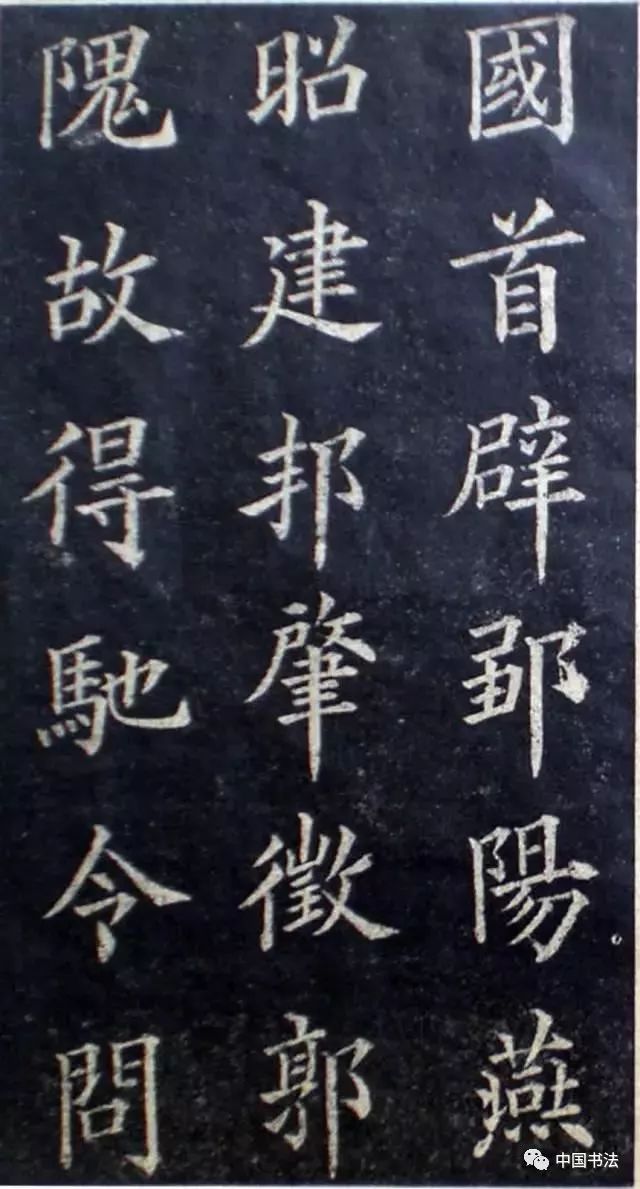 國首辟鄒陽燕
昭建邦肇徵郭
隗故得馳令問
中国书法